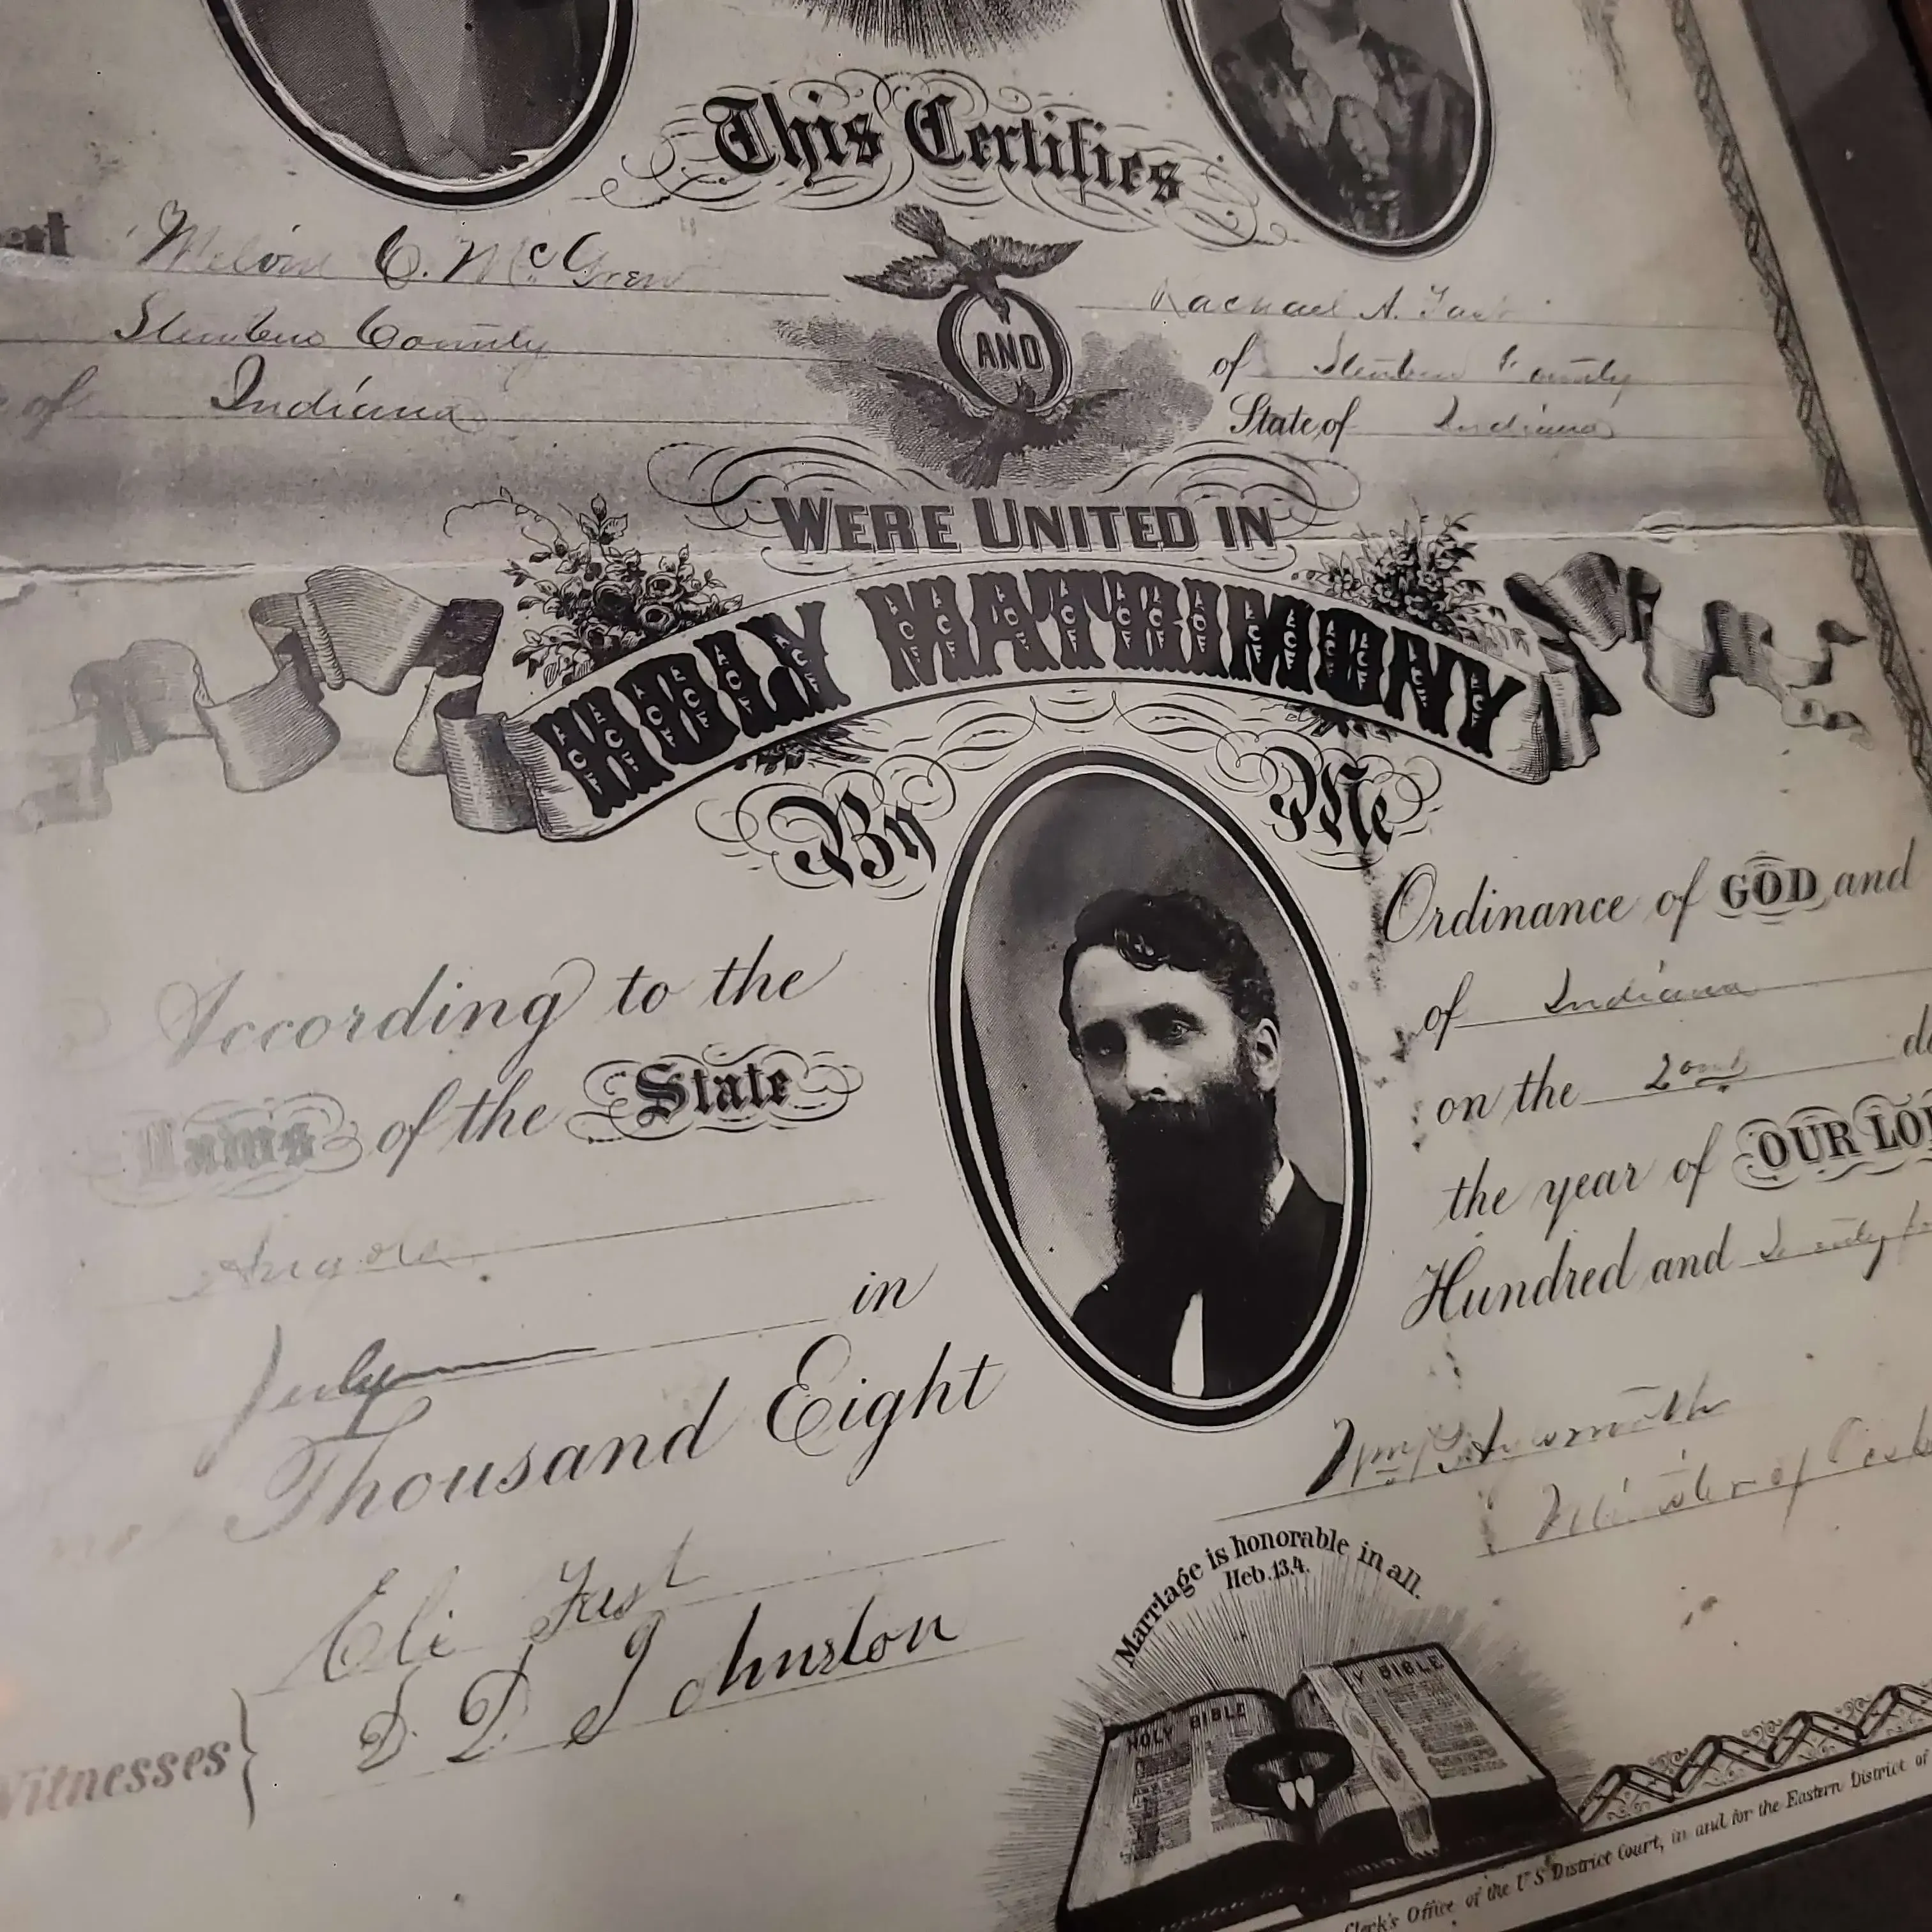 This Certifies
Melvin C. McGrew
AND
Rachael A.
Steuben County
of Steuben County
of Indiana
State of Indiana
WERE UNITED IN
HOLY MATRIMONY
By Me
According to the
Ordinance of GOD and
Laws of the State
of Indiana
Angola
on the
July in
the year of OUR
Thousand Eight
Hundred and
Wm
Minister of
Witnesses
Eli Fast
D. D. Johnston
Marriage is honorable in all.
Heb. 13.4.
HOLY BIBLE
BIBLE
Clerk's Office of the U S District Court, in and for the Eastern District of